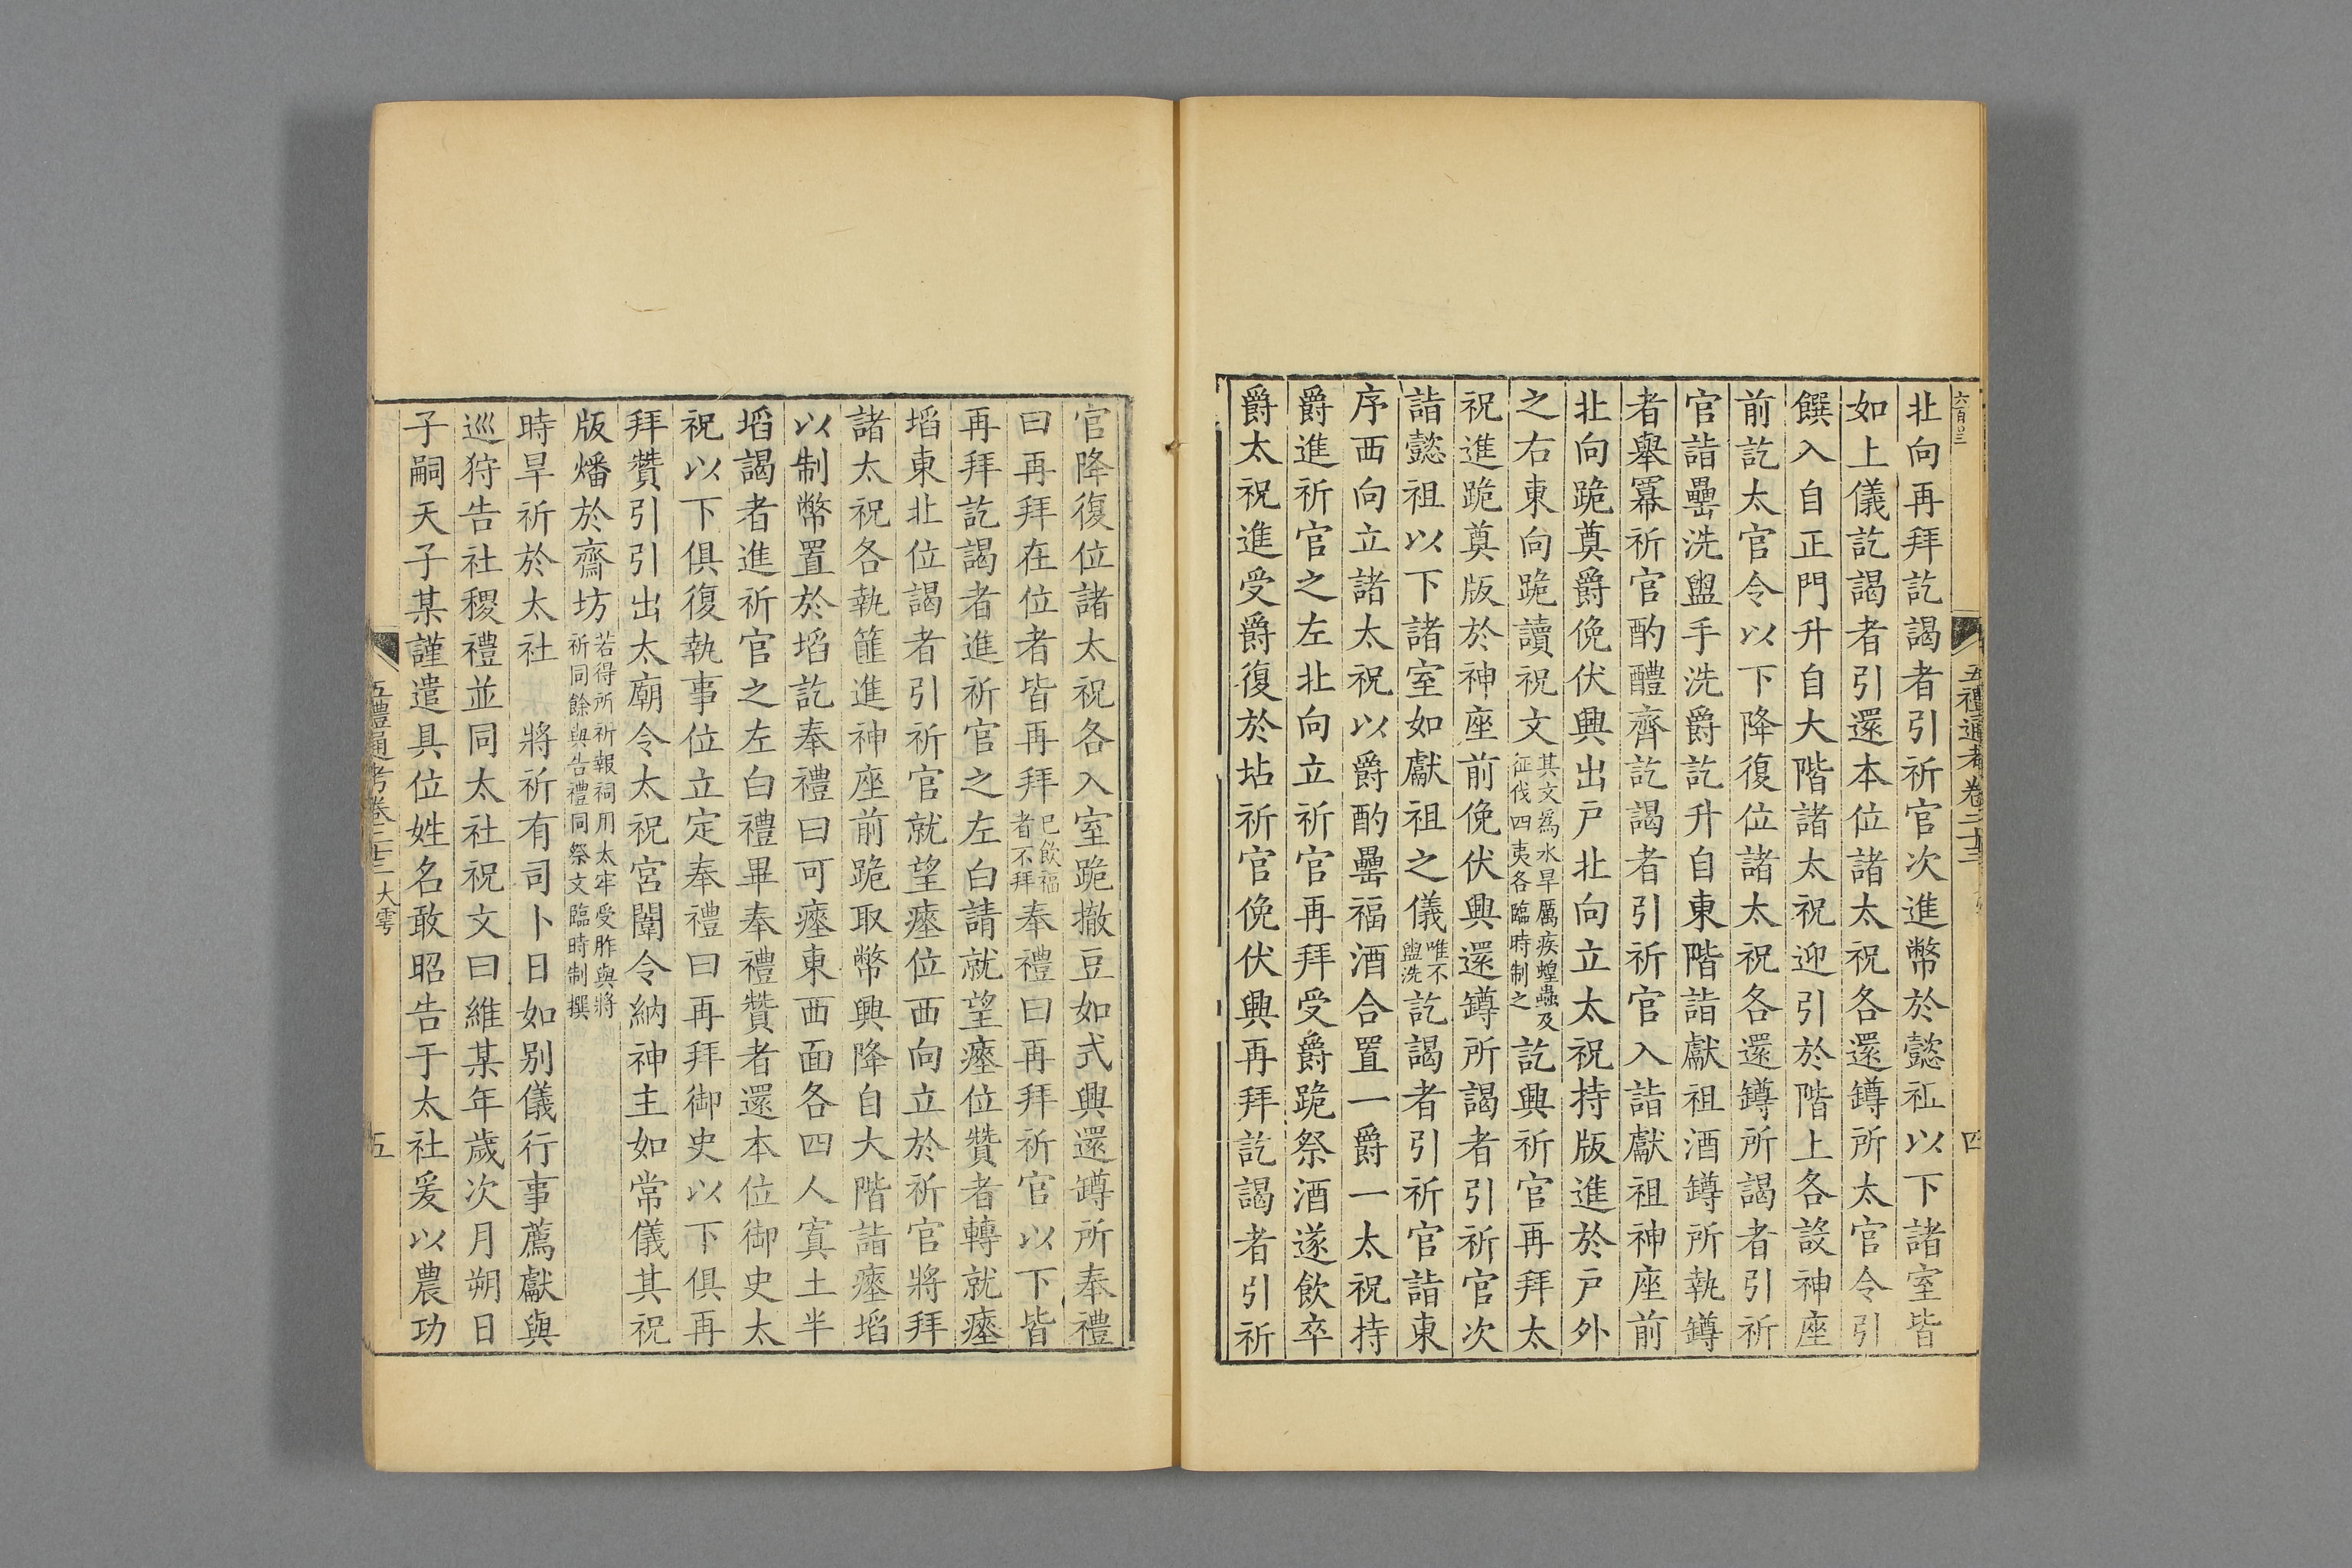 北向再拜訖謁者引祈官次進幣於懿祖以下諸室皆
如上儀訖謁者引還本位諸太祝各還罇所太官令引
饌入自正門升自大階諸太祝迎引於階上各設神座
前訖太官令以下降復位諸太祝各還罇所謁者引祈
官詣罍洗盥手洗爵訖升自東階詣獻祖酒罇所執罇
者舉冪祈官酌醴齊訖謁者引祈官入詣獻祖神座前
北向跪奠爵俛伏興出戶北向立太祝持版進於戶外
之右東向跪讀祝文其文爲水旱厲疾蝗蟲及征伐四夷各臨時制之訖興祈官再拜太
祝進跪奠版於神座前俛伏興還罇所謁者引祈官次
詣懿祖以下諸室如獻祖之儀唯不盥洗訖謁者引祈官詣東
序西向立諸太祝以爵酌罍福酒合置一爵一太祝持
爵進祈官之左北向立祈官再拜受爵跪祭酒遂飲卒
爵太祝進受爵復於坫祈官俛伏興再拜訖謁者引祈
官降復位諸太祝各入室跪撤豆如式興還罇所奉禮
曰再拜在位者皆再拜已飲福者不拜奉禮曰再拜祈官以下皆
再拜訖謁者進祈官之左白請就望瘞位贊者轉就瘞
埳東北位謁者引祈官就望瘞位西向立於祈官將拜
諸太祝各執篚進神座前跪取幣興降自大階詣瘞埳
以制幣置於埳訖奉禮曰可瘞東西面各四人寘土半
埳謁者進祈官之左白禮畢奉禮贊者還本位御史太
祝以下俱復執事位立定奉禮曰再拜御史以下俱再
拜贊引引出太廟令太祝宮闈令納神主如常儀其祝
版燔於齋坊若得所祈報祠用太牢受胙與將祈同餘與告禮同祭文臨時制撰
時旱祈於太社 將祈有司卜日如别儀行事薦獻與
巡狩告社稷禮並同太社祝文曰維某年歲次月朔日
子嗣天子某謹遣具位姓名敢昭告于太社爰以農功
五禮通考卷二十三 大雩 五
六百四三
五禮通考卷二十三
四